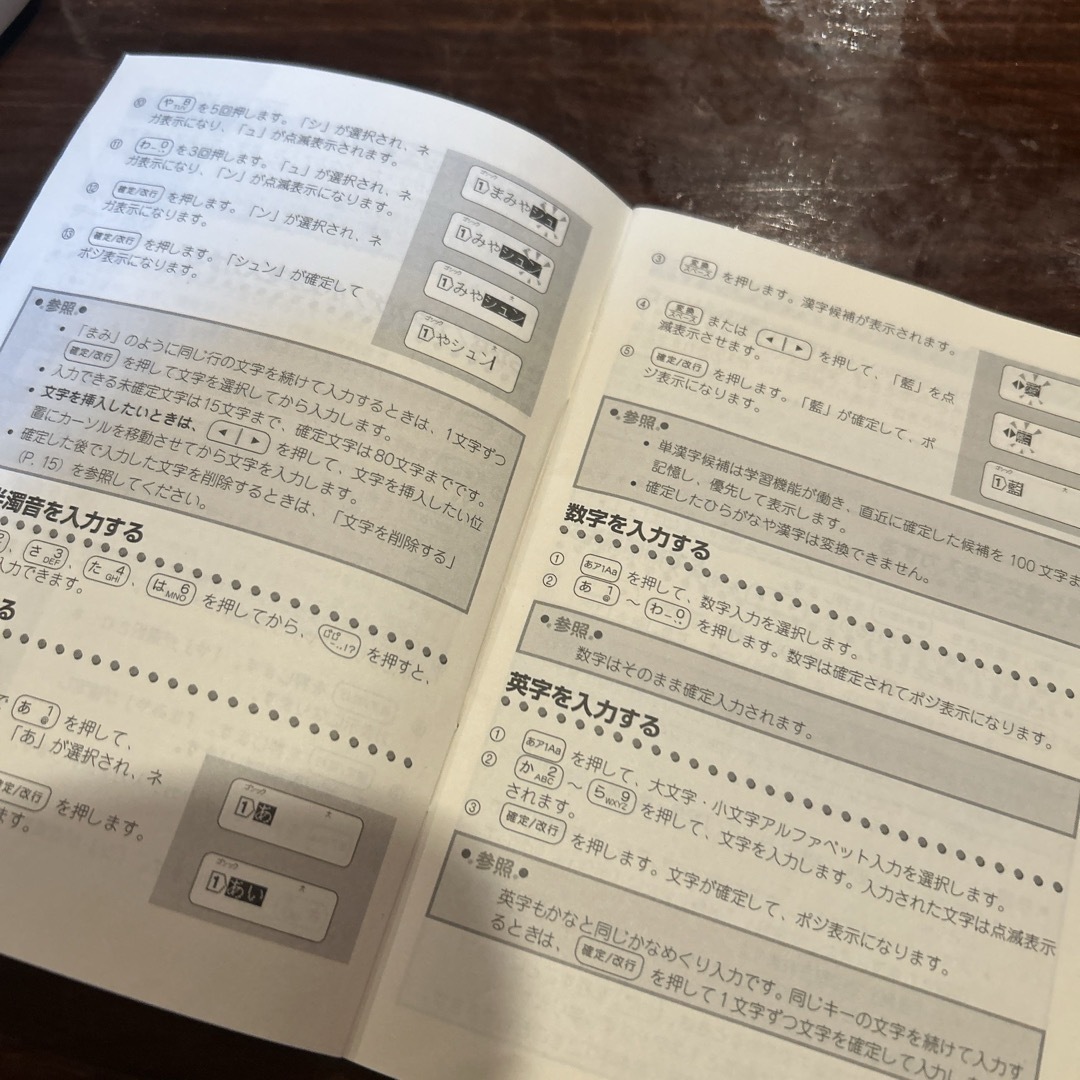 ⑩ や 8 TUV を5回押します。「シ」が選択され、ネ
ガ表示になり、「ュ」が点滅表示されます。
⑪ わ 0 を3回押します。「ュ」が選択され、ネ
ガ表示になり、「ン」が点滅表示になります。
⑫ 確定/改行 を押します。「ン」が選択され、ネ
ガ表示になります。
⑬ 確定/改行 を押します。「シュン」が確定して
ポジ表示になります。
ゴシック
1 まみやシュ
1 みやシュン
ゴシック 大
1 みやシュン
ゴシック 大
1 やシュン
参照
・「まみ」のように同じ行の文字を続けて入力するときは、1文字ずつ
確定/改行 を押して文字を選択してから入力します。
・入力できる未確定文字は15文字まで、確定文字は80文字までです。
・文字を挿入したいときは、◀ ▶ を押して、文字を挿入したい位
置にカーソルを移動させてから文字を入力します。
・確定した後で入力した文字を削除するときは、「文字を削除する」
(P. 15) を参照してください。
濁音を入力する
、さ 3 DEF、た 4 GHI、は 6 MNO を押してから、を押すと、
入力できます。
る
で あ 1 @ を押して、
「あ」が選択され、ネ
確定/改行 を押します。
ます。
ゴシック 大
1 あ
ゴシック 大
1 あい
③ 変換 スペース を押します。漢字候補が表示されます。
④ 変換 スペース または ◀ ▶ を押して、「藍」を点
滅表示させます。
⑤ 確定/改行 を押します。「藍」が確定して、ポ
ジ表示になります。
ゴシック
1 藍
参照
・単漢字候補は学習機能が働き、直近に確定した候補を 100 文字ま
記憶し、優先して表示します。
・確定したひらがなや漢字は変換できません。
数字を入力する
① あア1Aa を押して、数字入力を選択します。
② あ 1 @ ～ わ 0 を押します。数字は確定されてポジ表示になります。
参照
数字はそのまま確定入力されます。
英字を入力する
① あア1Aa を押して、大文字・小文字アルファベット入力を選択します。
② か 2 ABC ～ ら 9 WXYZ を押して、文字を入力します。入力された文字は点滅表示
されます。
③ 確定/改行 を押します。文字が確定して、ポジ表示になります。
参照
英字もかなと同じかなめくり入力です。同じキーの文字を続けて入力す
るときは、確定/改行 を押して1文字ずつ文字を確定して入力し